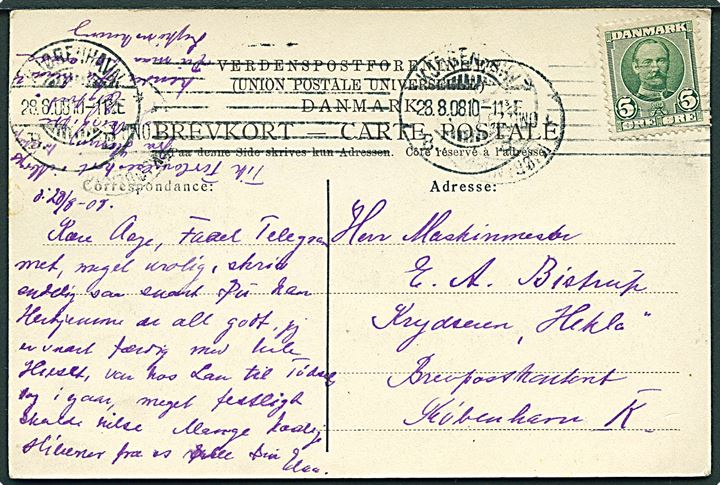 VERDENSPOSTFORENINGEN
(UNION POSTALE UNIVERSELLE)
DANMARK
BREVKORT — CARTE POSTALE
Paa denne Side skrives kun Adressen. Côté réservé à l'adresse.
DANMARK
5 5
ØRE ØRE
KJØBENHAVN
28.8.08 10-11 E
28.8.08 10-11 E
Correspondance:
Adresse:
d. 28/8-08.
Kære Aage, Faaet Telegram
met, meget urolig, skriv
endelig saa snart Du kan
Herhjemme er alt godt, jeg
er snart færdig med hele
Huset, var hos Lau til Fødsels
dag i gaar, meget festligt
skulde hilse Mange kærlige
Hilsener fra os alle Din
Herr Maskinmester
E. A. Bistrup
Krydseren „Hekla"
Brevpostkontoret
København K.